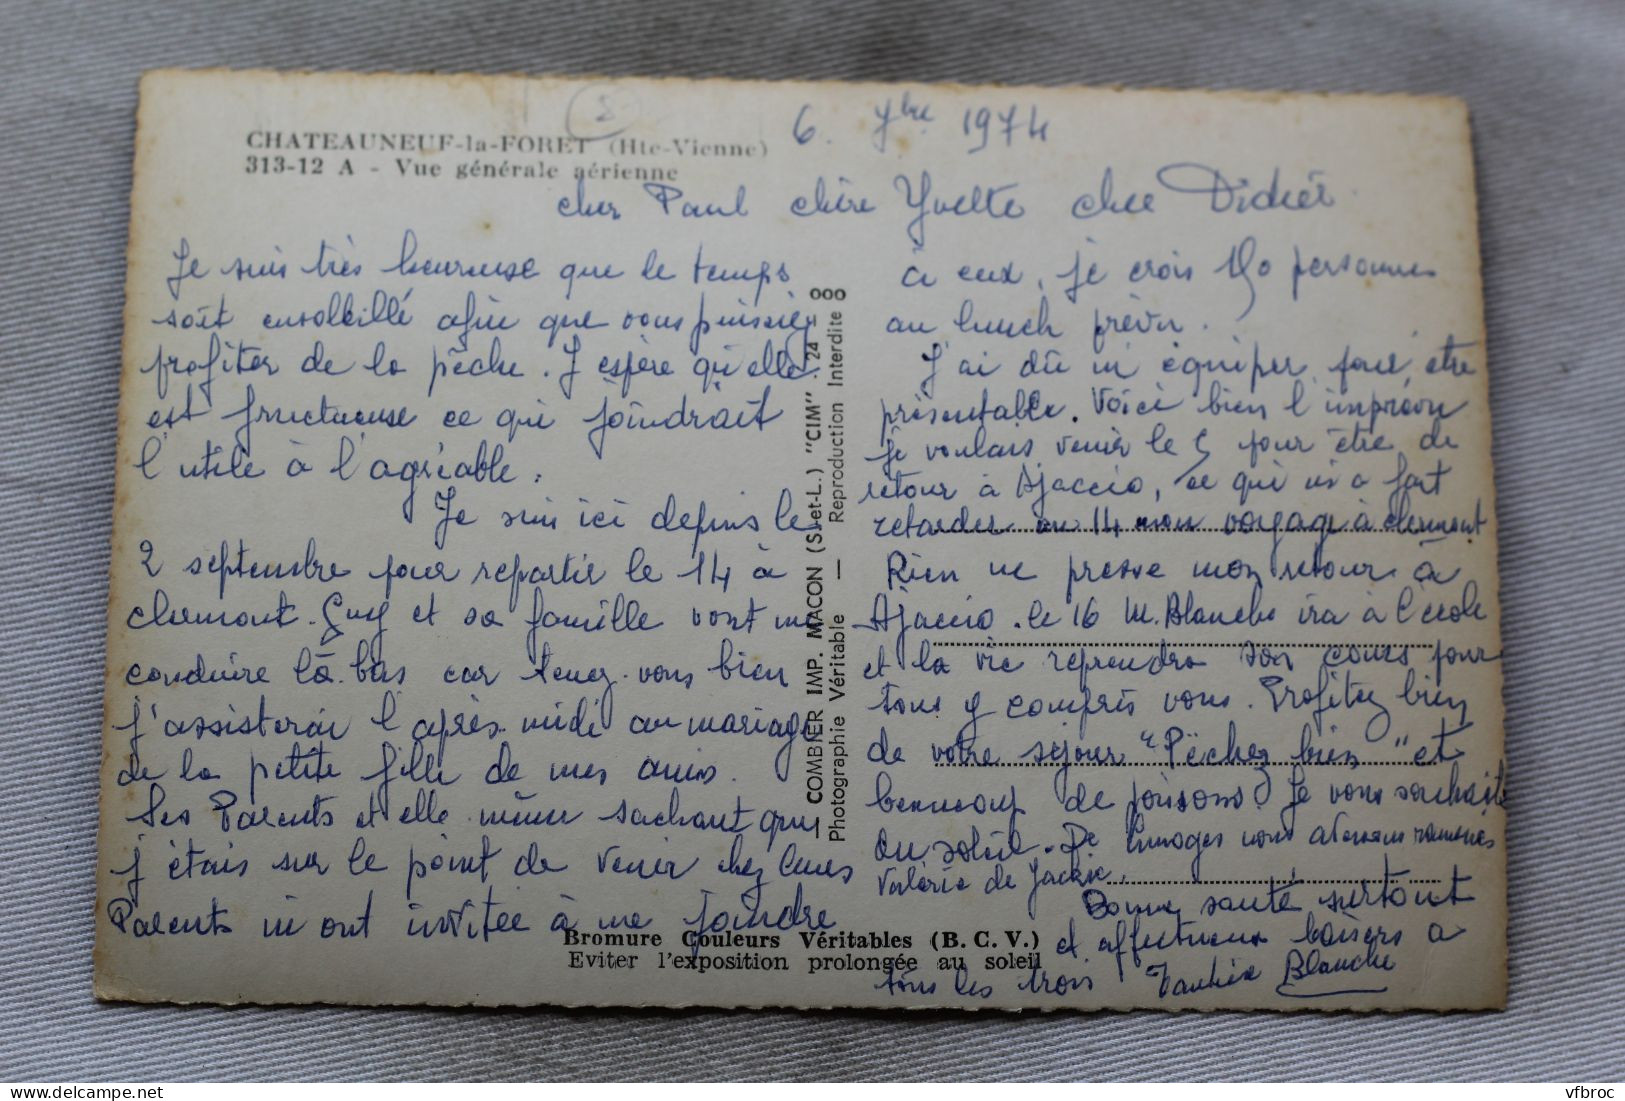 CHATEAUNEUF-la-FORET (Hte-Vienne)
313-12 A - Vue générale aérienne
6. 7bre 1974
cher Paul chère Yvette cher Didier
Je suis très heureuse que le temps
soit ensolleillé afin que vous puissiez
profiter de la pêche. J'espère qu'elle
est fructueuse ce qui joindrait
l'utile à l'agréable.
Je suis ici depuis le
2 septembre pour repartir le 14 à
clermont. Guy et sa famille vont me
conduire là-bas car tenez-vous bien
j'assisterai l'après-midi au mariage
de la petite fille de mes amis.
Ses Parents et elle même sachant que
j'étais sur le point de venir chez leurs
Parents m'ont invitée à me joindre
à eux, je crois 190 personnes
au lunch prévu.
J'ai dû m'équiper pour être
présentable. Voici bien l'imprévu
Je voulais venir le 5 pour être de
retour à Ajaccio, ce qui a fort
retarder au 14 mon voyage à clermont
Rien ne presse mon retour à
Ajaccio. le 16 M. Blanche ira à l'école
et la vie reprendra son cours pour
tous y compris vous. Profitez bien
de votre séjour "Pêchez bien" et
beaucoup de poissons. Je vous souhaite
du soleil. De Limoges nous
Valérie de Jackie.
Bonne santé surtout
et affectueux baisers à
tous les trois Blanche
— COMBIER IMP. MACON (S.-et-L.) "CIM" . 24 — 000
Photographie Véritable — Reproduction Interdite
Bromure Couleurs Véritables (B. C. V.)
Eviter l'exposition prolongée au soleil
vfbroc